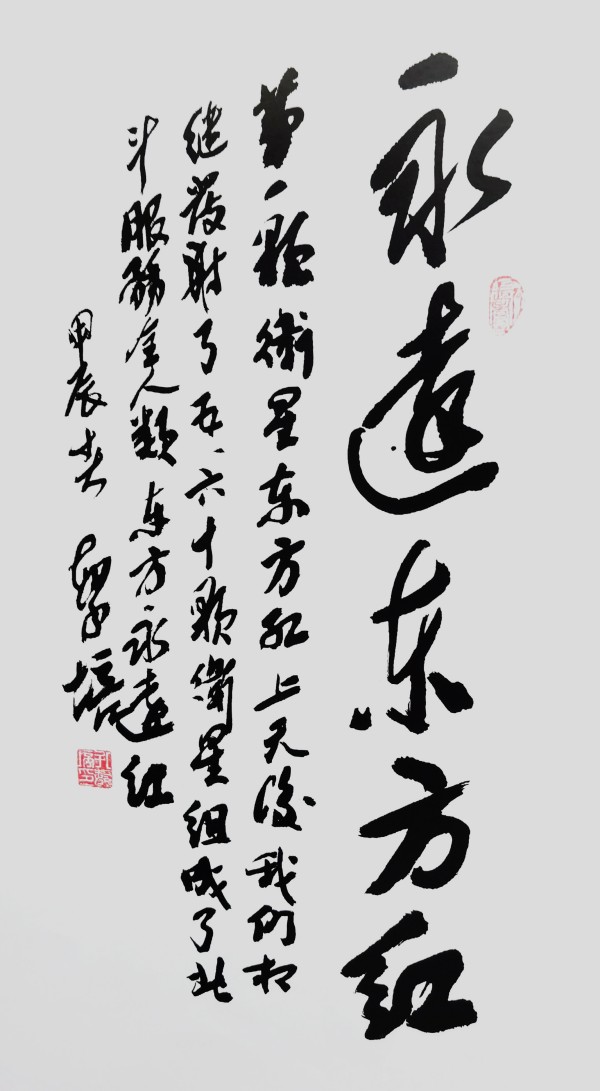 永远东方红
第一颗卫星东方红上天后我们相
继发射了五、六十颗卫星组成了北
斗服务全人类东方永远红
甲辰 培